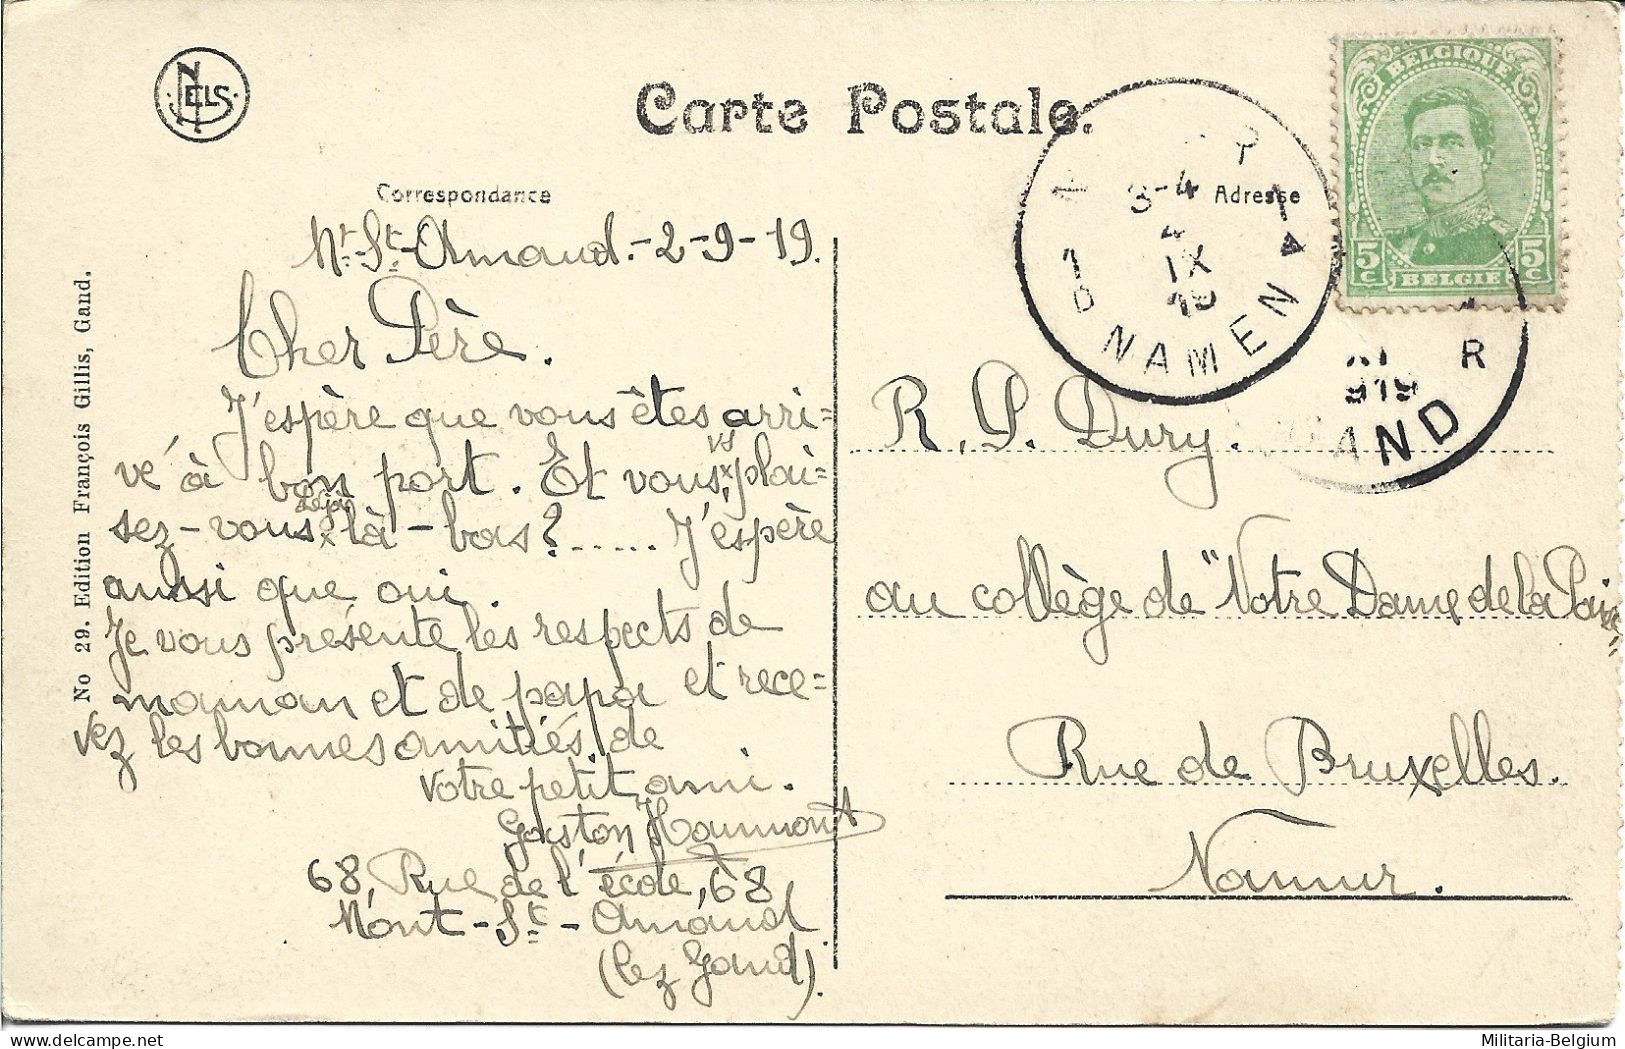 NELS
Carte Postale.
Correspondance
Adresse
No 29. Edition François Gillis, Gand.
BELGIQUE
5c 5c
BELGIE
3-4
4
IX
19
NAMEN
1919
GAND
Mt-St-Amand.-2-9-19.
Cher Père.
J'espère que vous êtes arri=
vé à bon port. Et vous vs plai=
sez-vous déjà là-bas?...... J'espère
aussi que oui.
Je vous présente les respects de
maman et de papa et rece=
vez les bonnes amitiés de
votre petit ami.
Gaston Haumont
68, Rue de l'école, 68
Mont-St-Amand
(lez Gand).
R. P. Dury.
au collège de "Notre Dame de la Paix"
Rue de Bruxelles.
Namur.
Militaria-Belgium